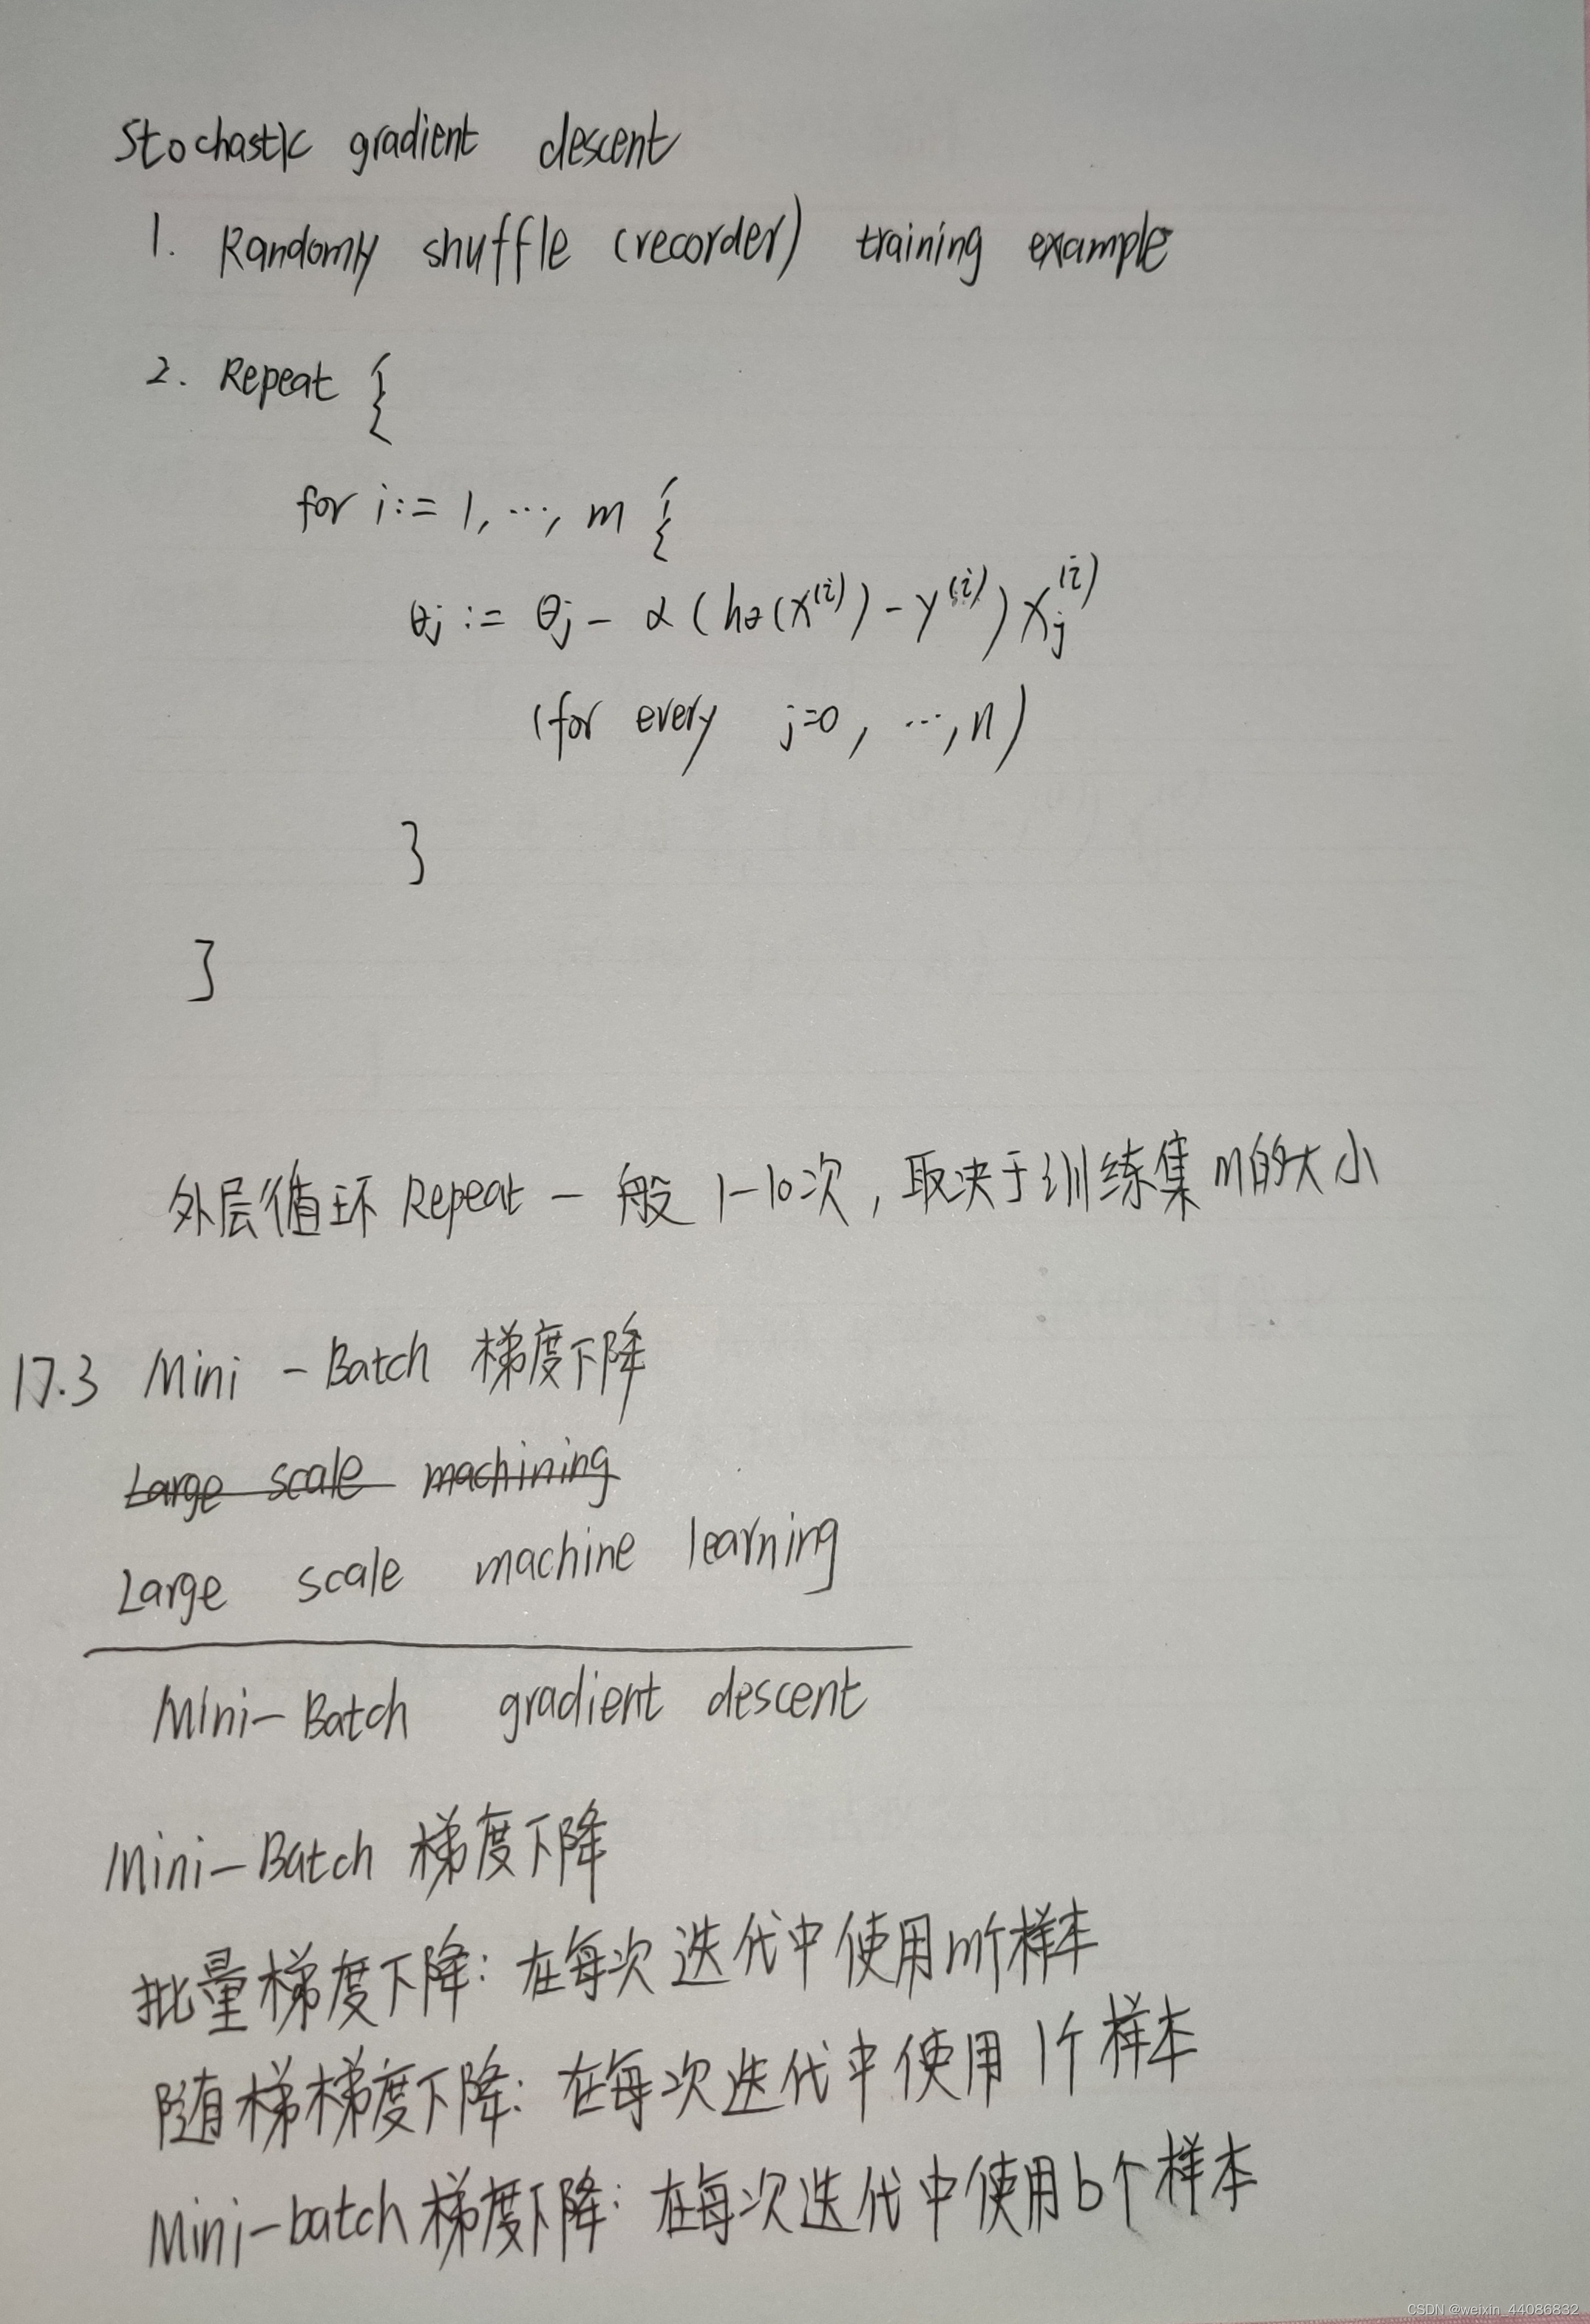 Stochastic gradient descent
1. Randomly shuffle (recorder) training example
2. Repeat {
for i := 1, ..., m {
θj := θj - α (hθ(x^(i)) - y^(i)) xj^(i)
(for every j=0, ..., n)
}
}
外层循环 Repeat 一般 1-10次, 取决于训练集m的大小
17.3 Mini - Batch 梯度下降
Large scale machining
Large scale machine learning
Mini-Batch gradient descent
Mini-Batch 梯度下降
批量梯度下降: 在每次迭代中使用m个样本
随梯梯度下降: 在每次迭代中使用 1个样本
Mini-batch梯度下降: 在每次迭代中使用b个样本
CSDN @weixin_44086832